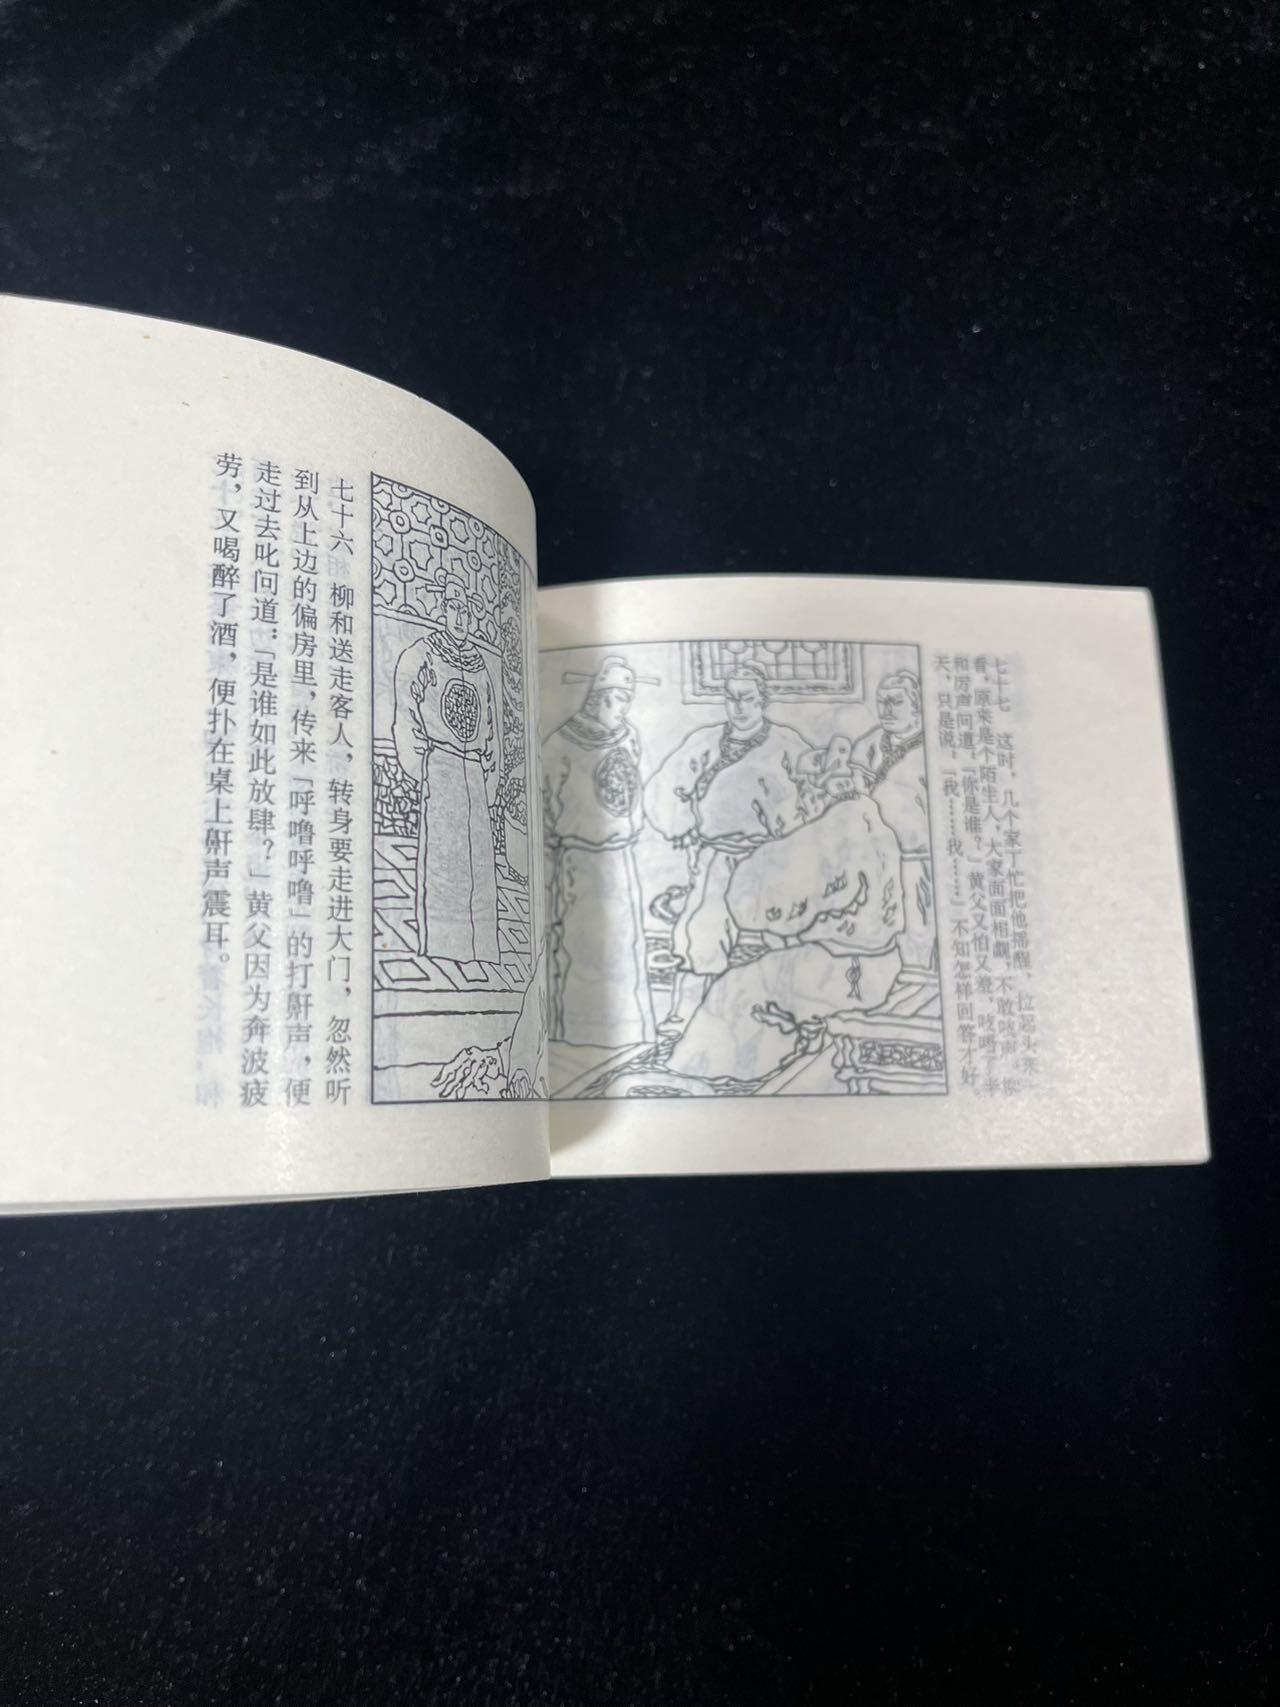 七十六 柳和送走客人，转身要走进大门，忽然听
到从上边的偏房里，传来「呼噜呼噜」的打鼾声，便
走过去叱问道：「是谁如此放肆？」黄父因为奔波疲
劳，又喝醉了酒，便扑在桌上鼾声震耳。
七十七 这时，几个家丁忙把他摇醒，拉起头来一
看，原来是个陌生人，大家面面相觑，不敢吱声。柳
和厉声问道：「你是谁？」黄父又怕又羞，吱唔了半
天，只是说：「我……我……」不知怎样回答才好。